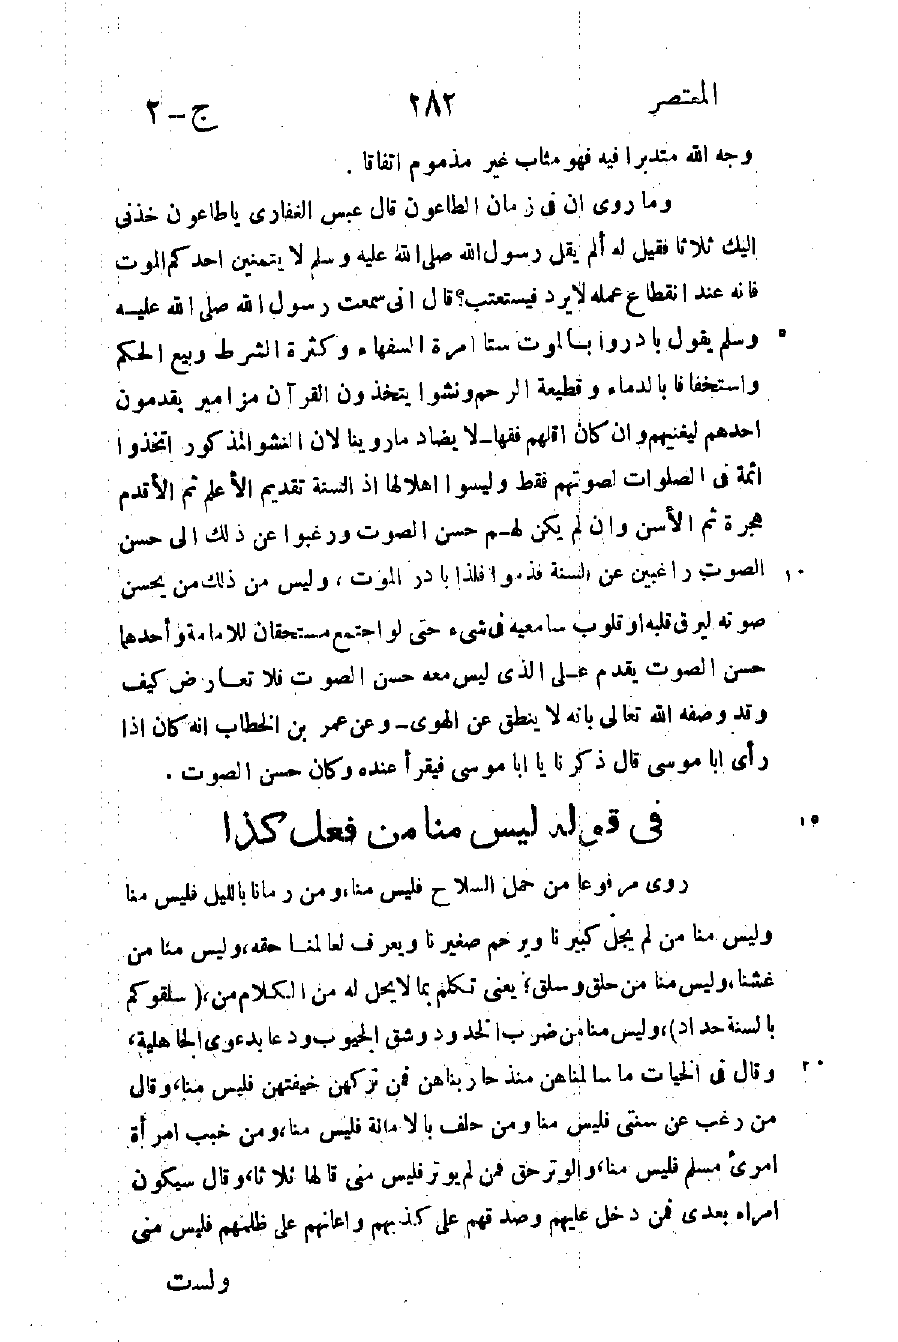 المعتصر ٢٨٢ ج – ٢
وجه الله متدبرا فيه فهو مثاب غير مذموم اتفاقا .
وما روى ان فى زمان الطاعون قال عبس الغفارى ياطاعون خذنى
اليك ثلاثا فقيل له ألم يقل رسول الله صلى الله عليه وسلم لا يتمنين احدكم الموت
فانه عند انقطاع عمله لا يرد فيستعتب؟ قال انى سمعت رسول الله صلى الله عليه
وسلم يقول بادروا بالموت ستا امرة السفهاء وكثرة الشرط وبيع الحكم ٥
واستخفافا بالدماء وقطيعة الرحم ونشوا يتخذون القرآن مزامير يقدمون
احدهم ليغنيهم وان كان اقلهم فقها – لا يضاد ماروينا لان النشو المذكور اتخذوا
ائمة فى الصلوات لصوتهم فقط وليسوا اهلا لها اذ السنة تقديم الأعلم ثم الأقدم
هجرة ثم الأسن وان لم يكن لهم حسن الصوت ورغبوا عن ذلك الى حسن
الصوت راغبين عن السنة فذموا فلذا بادر الموت ، وليس من ذلك من يحسن ١٠
صوته ليرق قلبه او قلوب سامعيه فى شىء حتى لو اجتمع مستحقان للامامة وأحدهما
حسن الصوت يقدم على الذى ليس معه حسن الصوت فلا تعارض كيف
وقد وصفه الله تعالى بانه لا ينطق عن الهوى – وعن عمر بن الخطاب انه كان اذا
رأى ابا موسى قال ذكرنا يا ابا موسى فيقرأ عنده وكان حسن الصوت .
فى قوله ليس منا من فعل كذا ١٥
روى مرفوعا من حمل السلاح فليس منا، ومن رمانا بالليل فليس منا
وليس منا من لم يجل كبيرنا ويرحم صغيرنا ويعرف لعالمنا حقه، وليس منا من
غشنا، وليس منا من حلق وسلق؛ يعنى تكلم بما لا يحل له من الكلام من، ( سلقوكم
بالسنة حداد )، وليس منا من ضرب الخدود وشق الجيوب ودعا بدعوى الجاهلية،
وقال فى الحيات ما سالمناهن منذ حاربناهن فمن تركهن خيفتهن فليس منا، وقال ٢٠
من رغب عن سنتى فليس منا ومن حلف بالامانة فليس منا، ومن خبب امرأة
امرئ مسلم فليس منا، والوتر حق فمن لم يوتر فليس منى قالها ثلاثا، وقال سيكون
امراء بعدى فمن دخل عليهم وصدقهم على كذبهم واعانهم على ظلمهم فليس منى
ولست